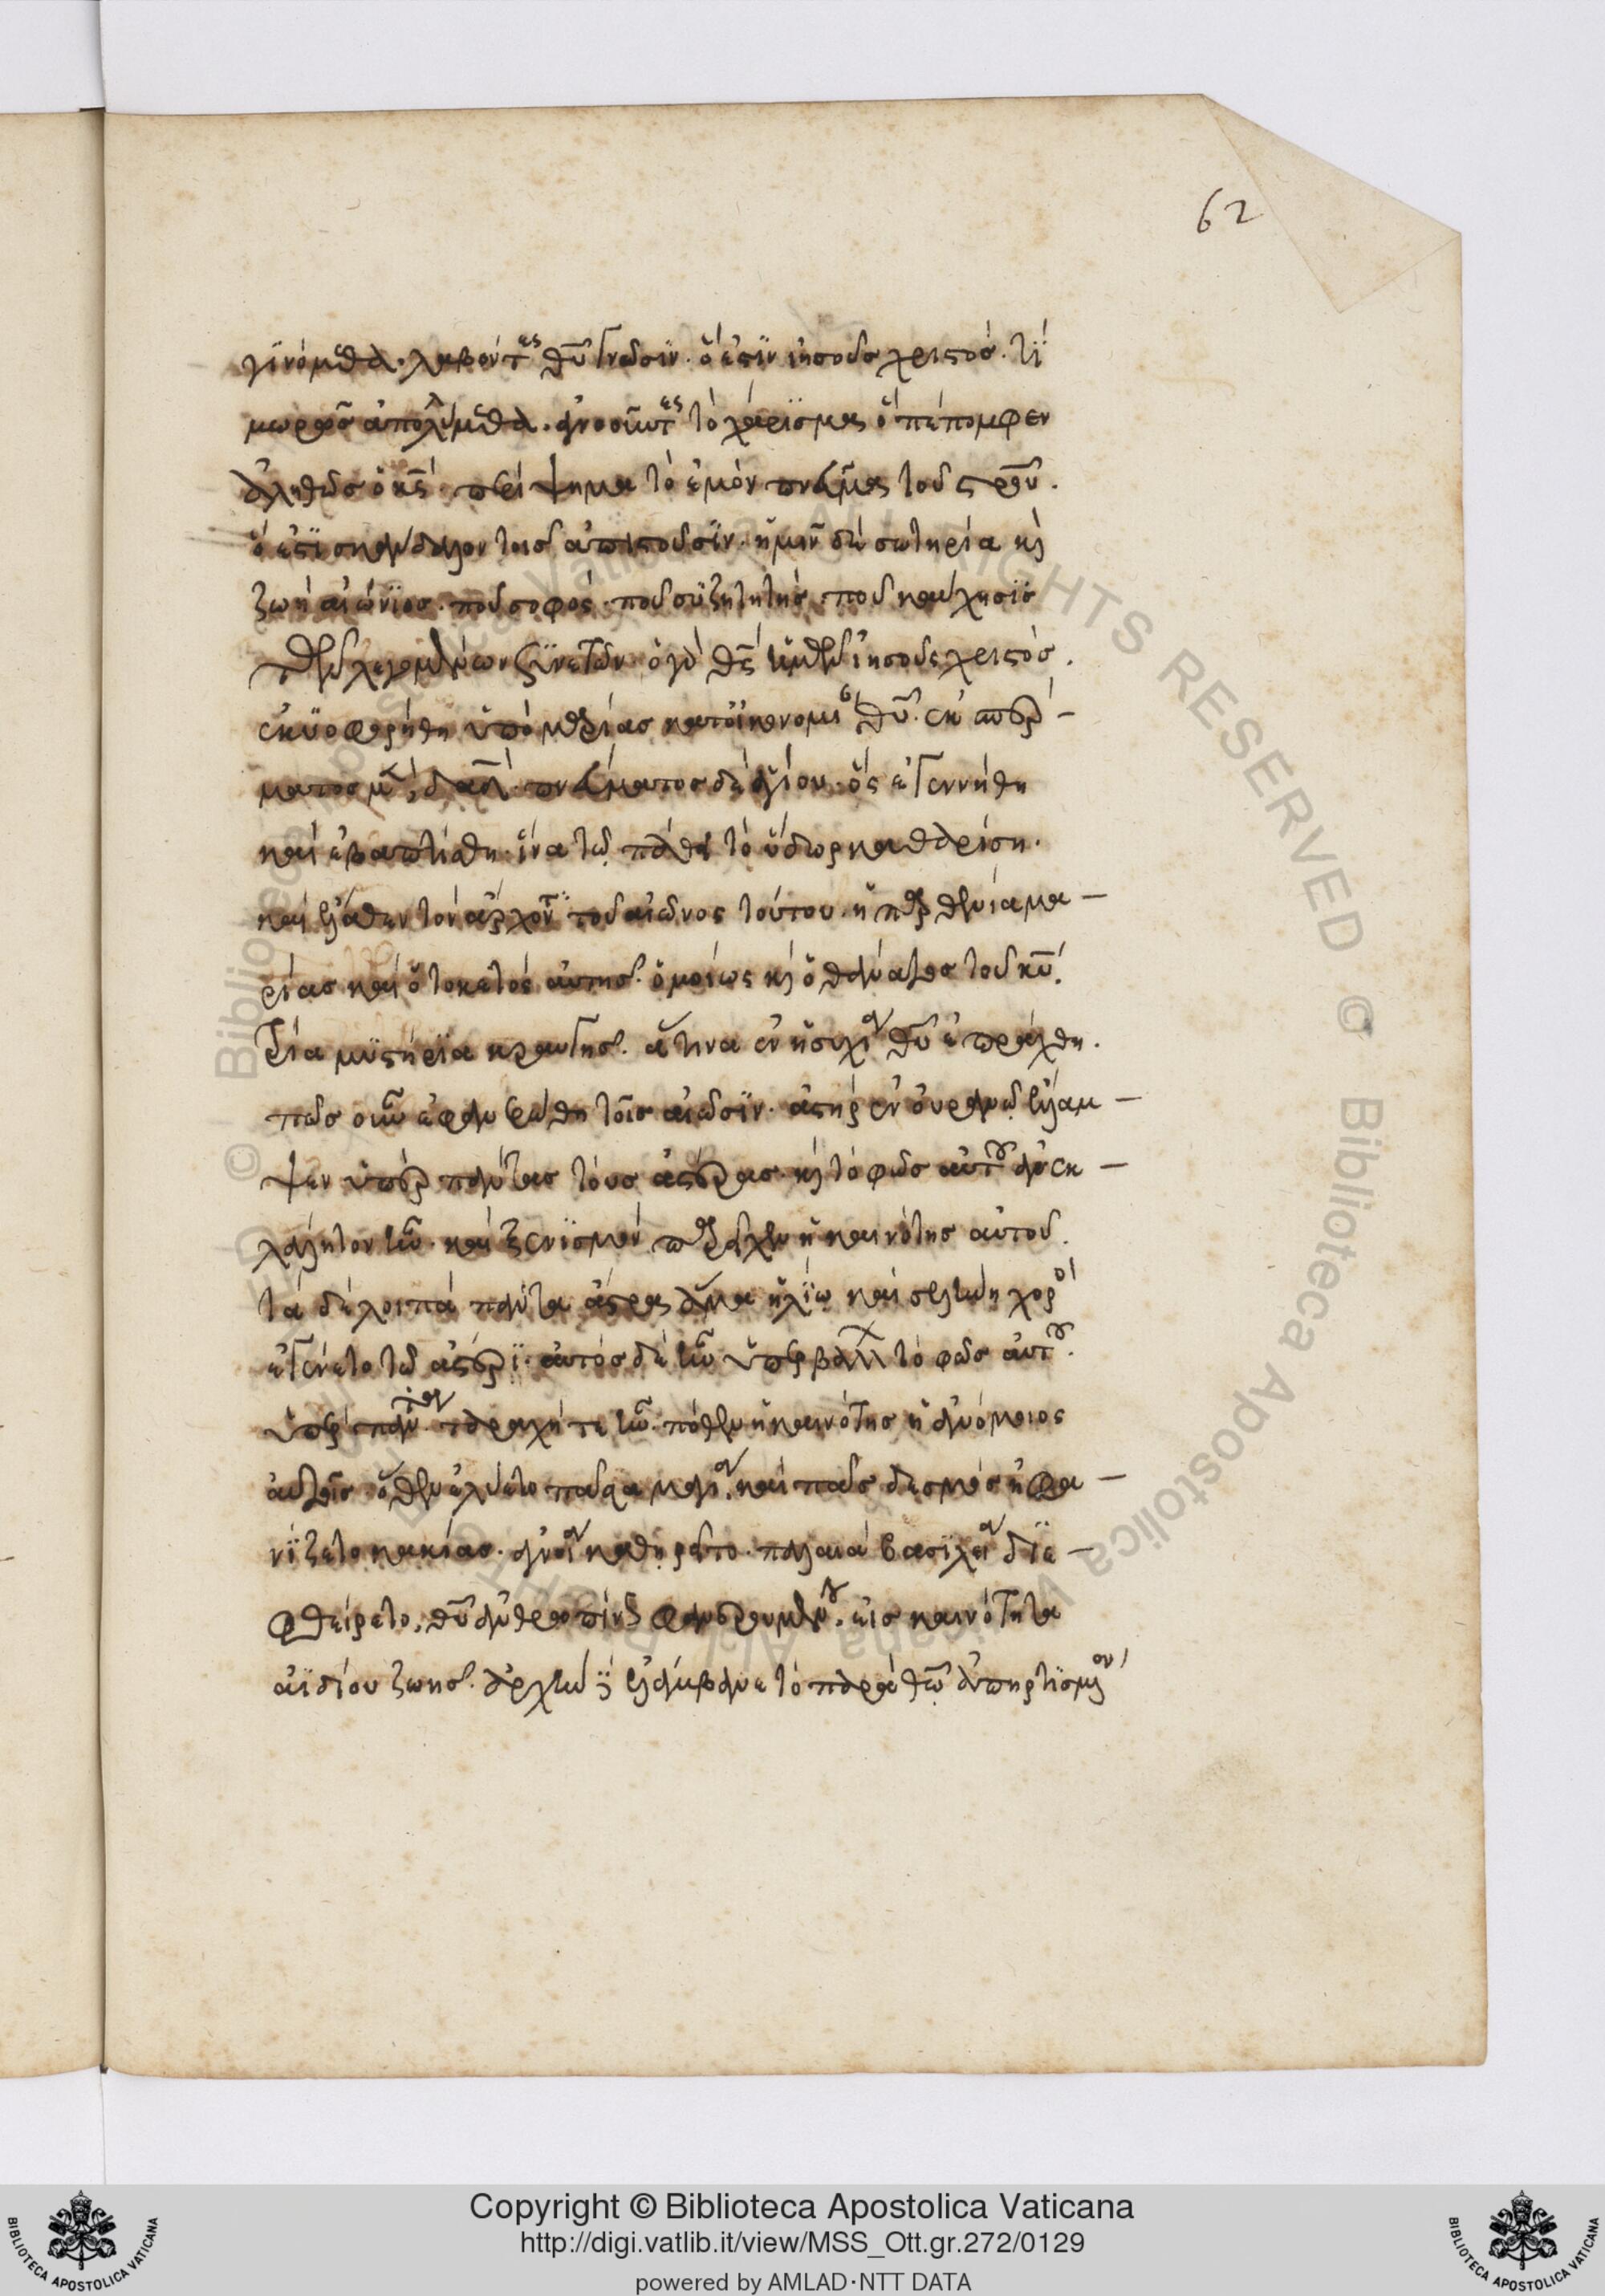 62
γινόμεθα. λαβόντες θυ γνῶσιν. ὅ ἐστιν ἰησοῦς χριστός. τί
μωρῶς ἀπολύμεθα. ἀγνοοῦντες τὸ χάρισμα ὃ πέπομφεν
ἀληθῶς ὁ κς. περίψημα τὸ ἐμὸν πνεῦμα τοῦ στρου.
ὅ ἐστι σκάνδαλον τοῖς ἀπιστοῦσιν. ἡμῖν δὲ σωτηρία κὶ
ζωὴ αἰώνιος. ποῦ σοφός. ποῦ συζητητής. ποῦ καύχησις
τῶν λεγομένων συνετῶν. ὁ γὰρ θς ἡμῶν ἰησοῦς χριστὸς.
ἐκυοφορήθη ὑπὸ μαρίας κατ' οἰκονομίαν θυ. ἐκ σπέρ–
ματος μὲν δαδ. πνεύματος δὲ ἁγίου. ὃς ἐγεννήθη
καὶ ἐβαπτίσθη. ἵνα τῷ πάθει τὸ ὕδωρ καθαρίσῃ.
καὶ ἔλαθεν τὸν ἄρχοντα τοῦ αἰῶνος τούτου. ἡ παρθενία μα–
ρίας καὶ ὁ τοκετὸς αὐτῆς. ὁμοίως κὶ ὁ θάνατος τοῦ κυ.
τρία μυστήρια κραυγῆς. ἅτινα ἐν ἡσυχίᾳ θυ ἐπράχθη.
πῶς οὖν ἐφανερώθη τοῖς αἰῶσιν. ἀστὴρ ἐν οὐρανῷ ἔλαμ–
ψεν ὑπὲρ πάντας τοὺς ἀστέρας. κὶ τὸ φῶς αὐτοῦ ἀνεκ–
λάλητον ἦν. καὶ ξενισμὸν παρεῖχεν ἡ καινότης αὐτοῦ.
τὰ δὲ λοιπὰ πάντα ἄστρα ἅμα ἡλίῳ καὶ σελήνῃ χορὸς
ἐγένετο τῷ ἀστέρι. αὐτὸς δὲ ἦν ὑπερβάλλων τὸ φῶς αὐτοῦ
ὑπὲρ πάντα. ταραχή τε ἦν. πόθεν ἡ καινότης ἡ ἀνόμοιος
αὐτοῖς. ὅθεν ἐλύετο πᾶσα μαγεία. καὶ πᾶς δεσμὸς ἠφα–
νίζετο κακίας. ἄγνοια καθῃρεῖτο. παλαιὰ βασιλεία διε–
φθείρετο. θυ ἀνθρωπίνως φανερουμένου. εἰς καινότητα
ἀϊδίου ζωῆς. ἀρχὴν δὲ ἐλάμβανε τὸ παρὰ θῶ ἀπηρτισμένον
Copyright © Biblioteca Apostolica Vaticana
http://digi.vatlib.it/view/MSS_Ott.gr.272/0129
powered by AMLAD·NTT DATA